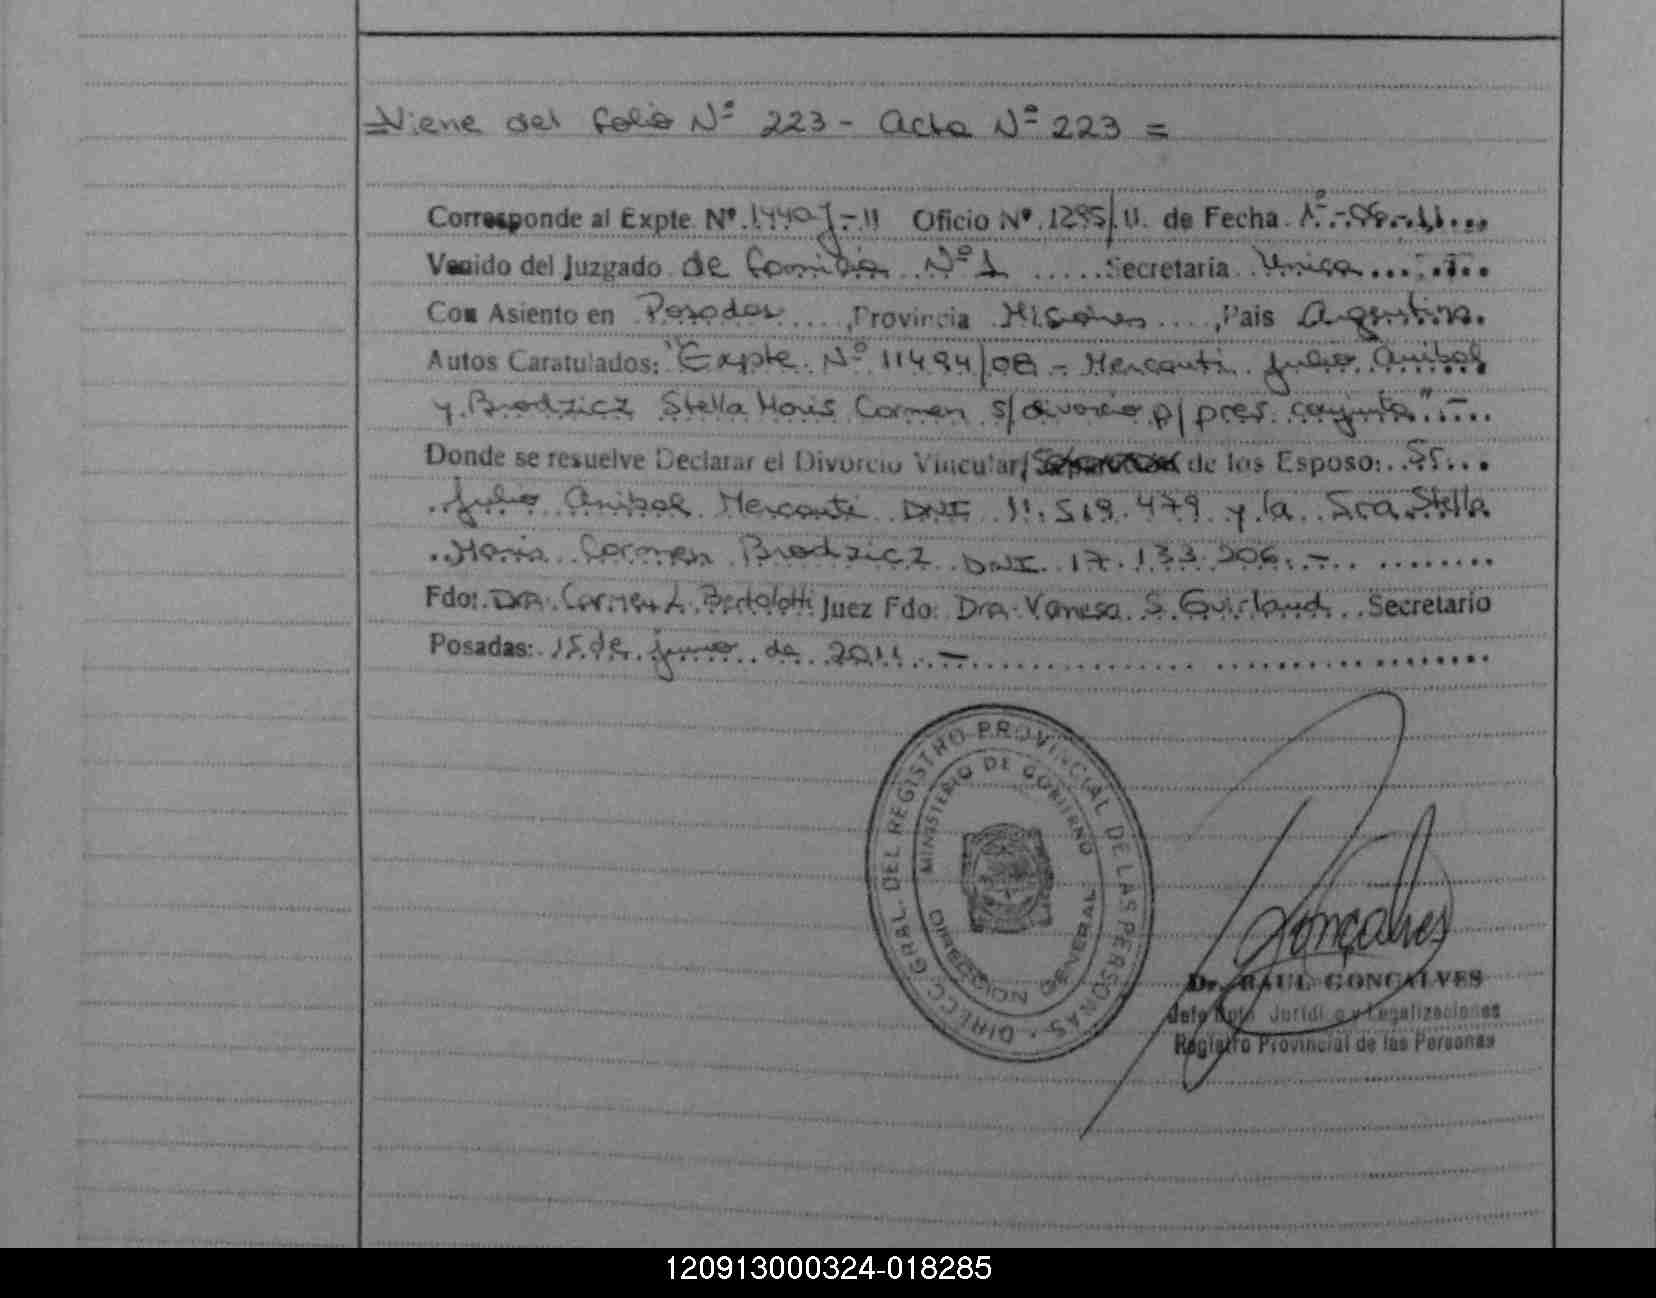 =Viene del folio Nº 223 - Acta Nº 223 =
Corresponde al Expte. Nº 1440 J-11 Oficio Nº 1295/11. de Fecha 1º-06-11...
Venido del Juzgado de Familia Nº 1 ..... Secretaria Unica.......
Con Asiento en Posadas ...., Provincia Misiones ...., Pais Argentina.
Autos Caratulados: "Expte. Nº 11494/08 - Mercanti Julio Anibal
y Brodzicz Stella Maris Carmen s/divorcio p/ pres. conjunta".-...
Donde se resuelve Declarar el Divorcio Vincular/ de los Esposo: Sr....
Julio Anibal Mercanti DNI 11.519.479 y la Sra Stella
Maris Carmen Brodzicz DNI 17.133.206.-
Fdo: Dra. Carmen L. Bertolotti Juez Fdo: Dra. Vanesa S. Guirland Secretario
Posadas: 15 de junio de 2011 .-
DIRECC. GRAL. DEL REGISTRO PROVINCIAL DE LAS PERSONAS
MINISTERIO DE GOBIERNO
DIRECCION GENERAL
Gonçalves
Dr. RAUL GONCALVES
Jefe Dpto Juridico y Legalizaciones
Registro Provincial de las Personas
120913000324-018285